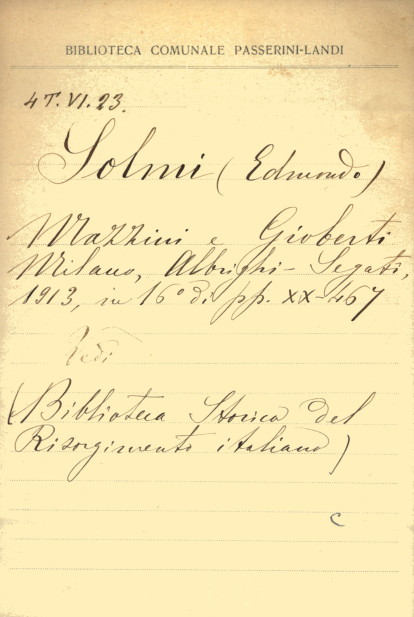 BIBLIOTECA COMUNALE PASSERINI-LANDI
4T.VI.23.
Solmi (Edmondo)
Mazzini e Gioberti
Milano, Albrighi-Segati,
1913, in 16° di pp. XX-467
Vedi
(Biblioteca Storica del
Risorgimento italiano)
C